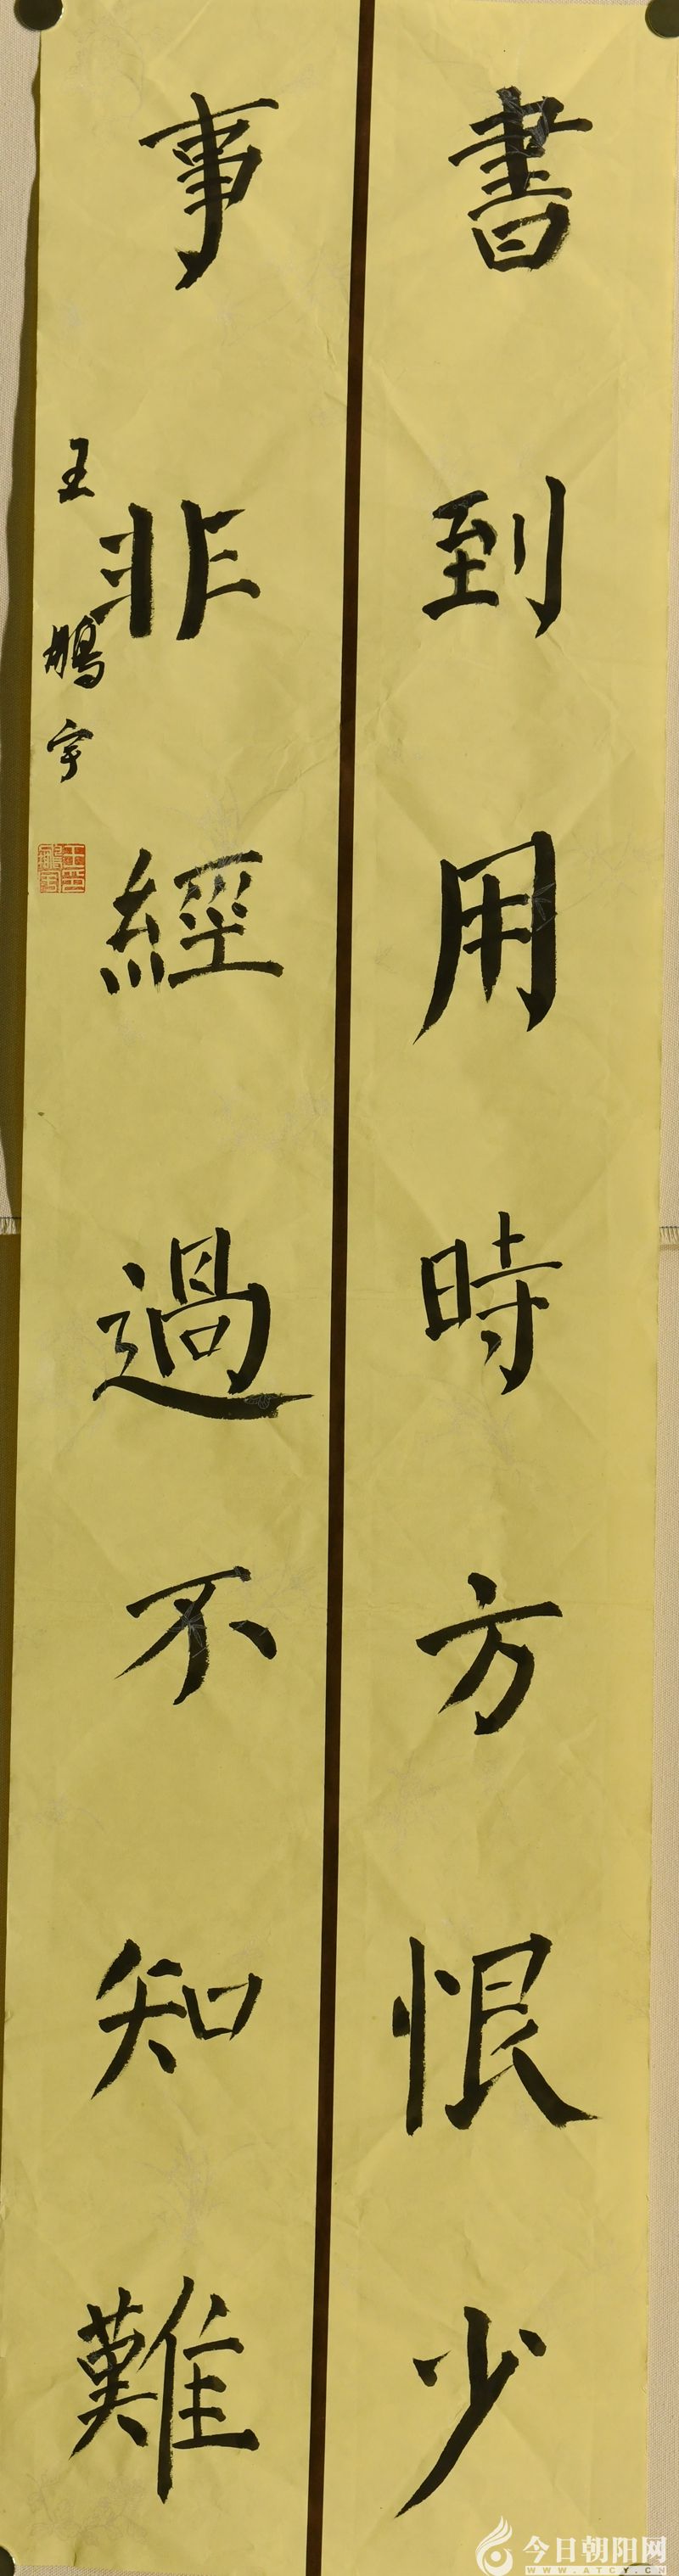 書到用時方恨少
事非經過不知難
王鵬宇
今日朝阳网
WWW.ATCY.CN